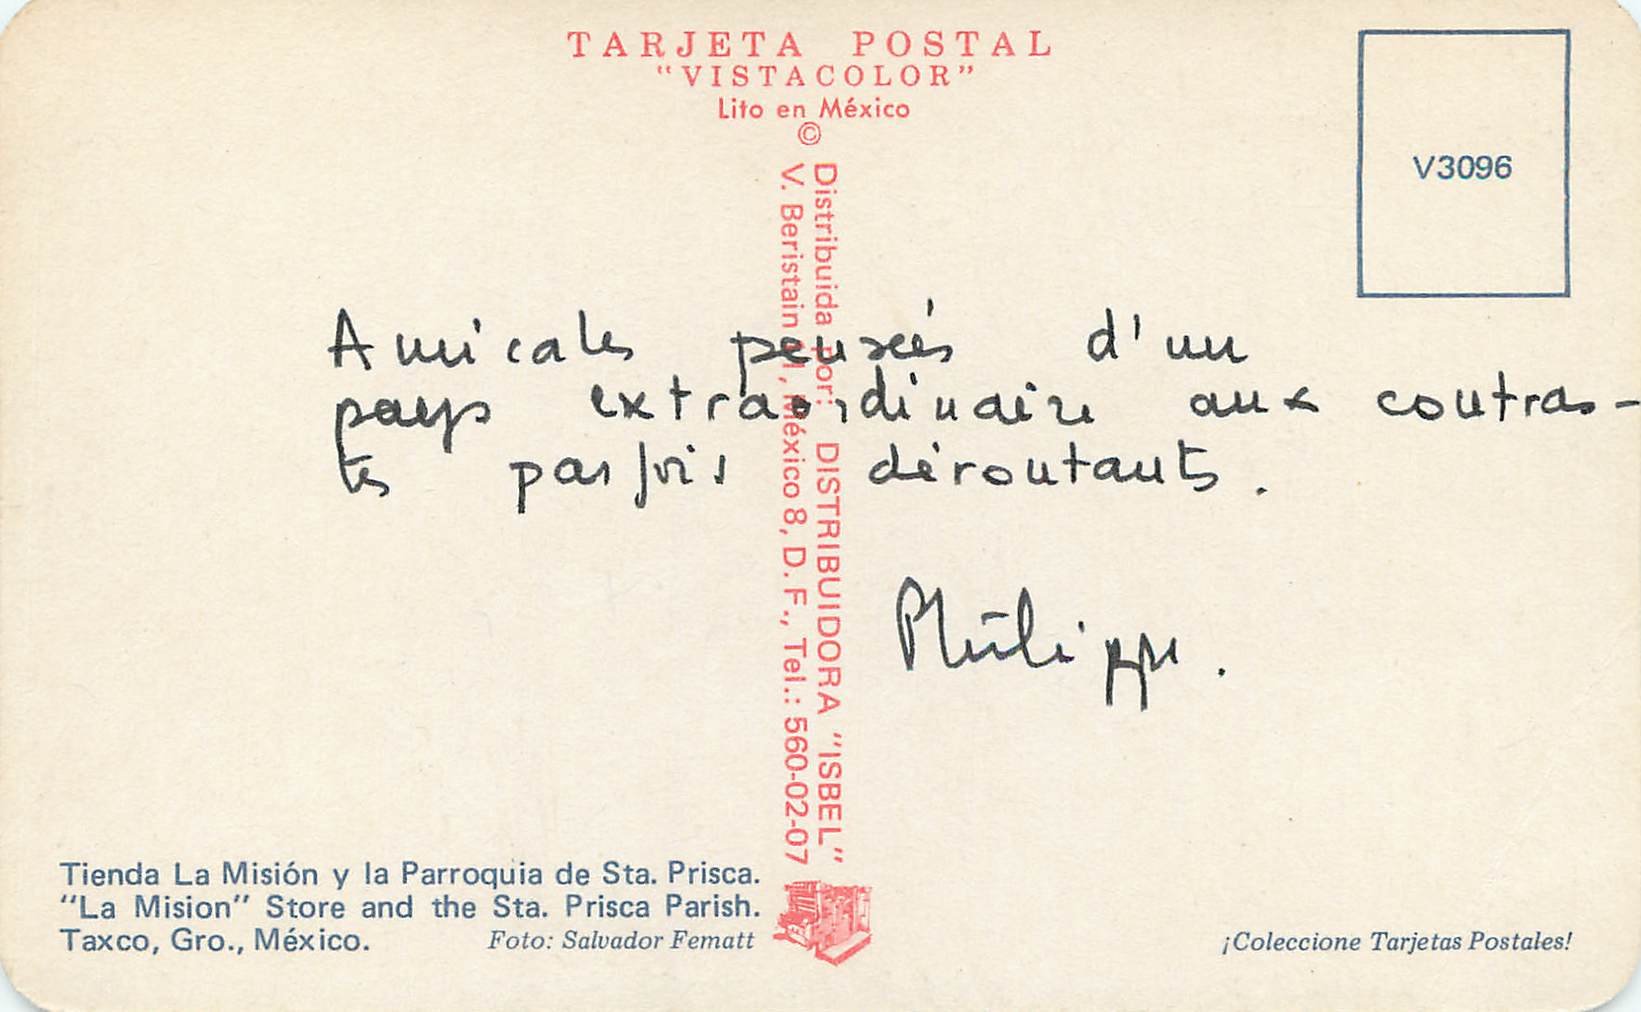 TARJETA POSTAL
"VISTACOLOR"
Lito en México
©
Distribuida por: DISTRIBUIDORA "ISBEL"
V. Beristain 11, México 8, D.F., Tel.: 560-02-07
V3096
Amicales pensées d'un
pays extraordinaire aux contras-
tes parfois déroutants.
Philippe.
Tienda La Misión y la Parroquia de Sta. Prisca.
"La Mision" Store and the Sta. Prisca Parish.
Taxco, Gro., México.
Foto: Salvador Fematt
¡Coleccione Tarjetas Postales!